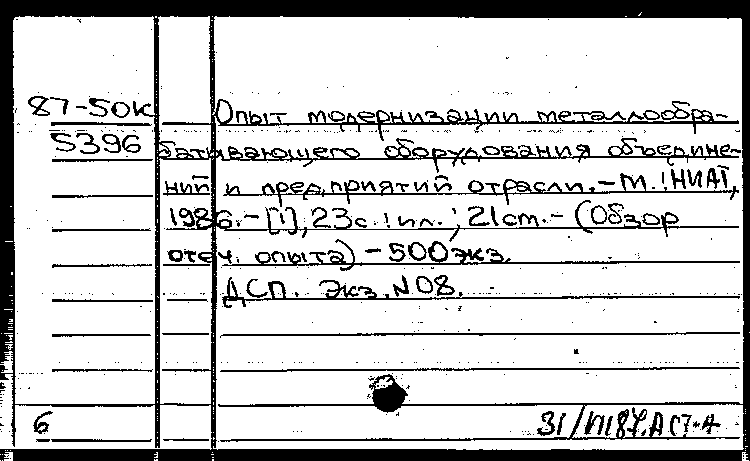 87-50к Опыт модернизации металлообра-
5396 батывающего оборудования объедине-
ний и предприятий отрасли. - М.: НИАТ,
1986. - [1], 23с.: ил.; 21см. - (Обзор
отеч. опыта) - 500экз.
ДСП. Экз. N08.
6 31/VII87г.